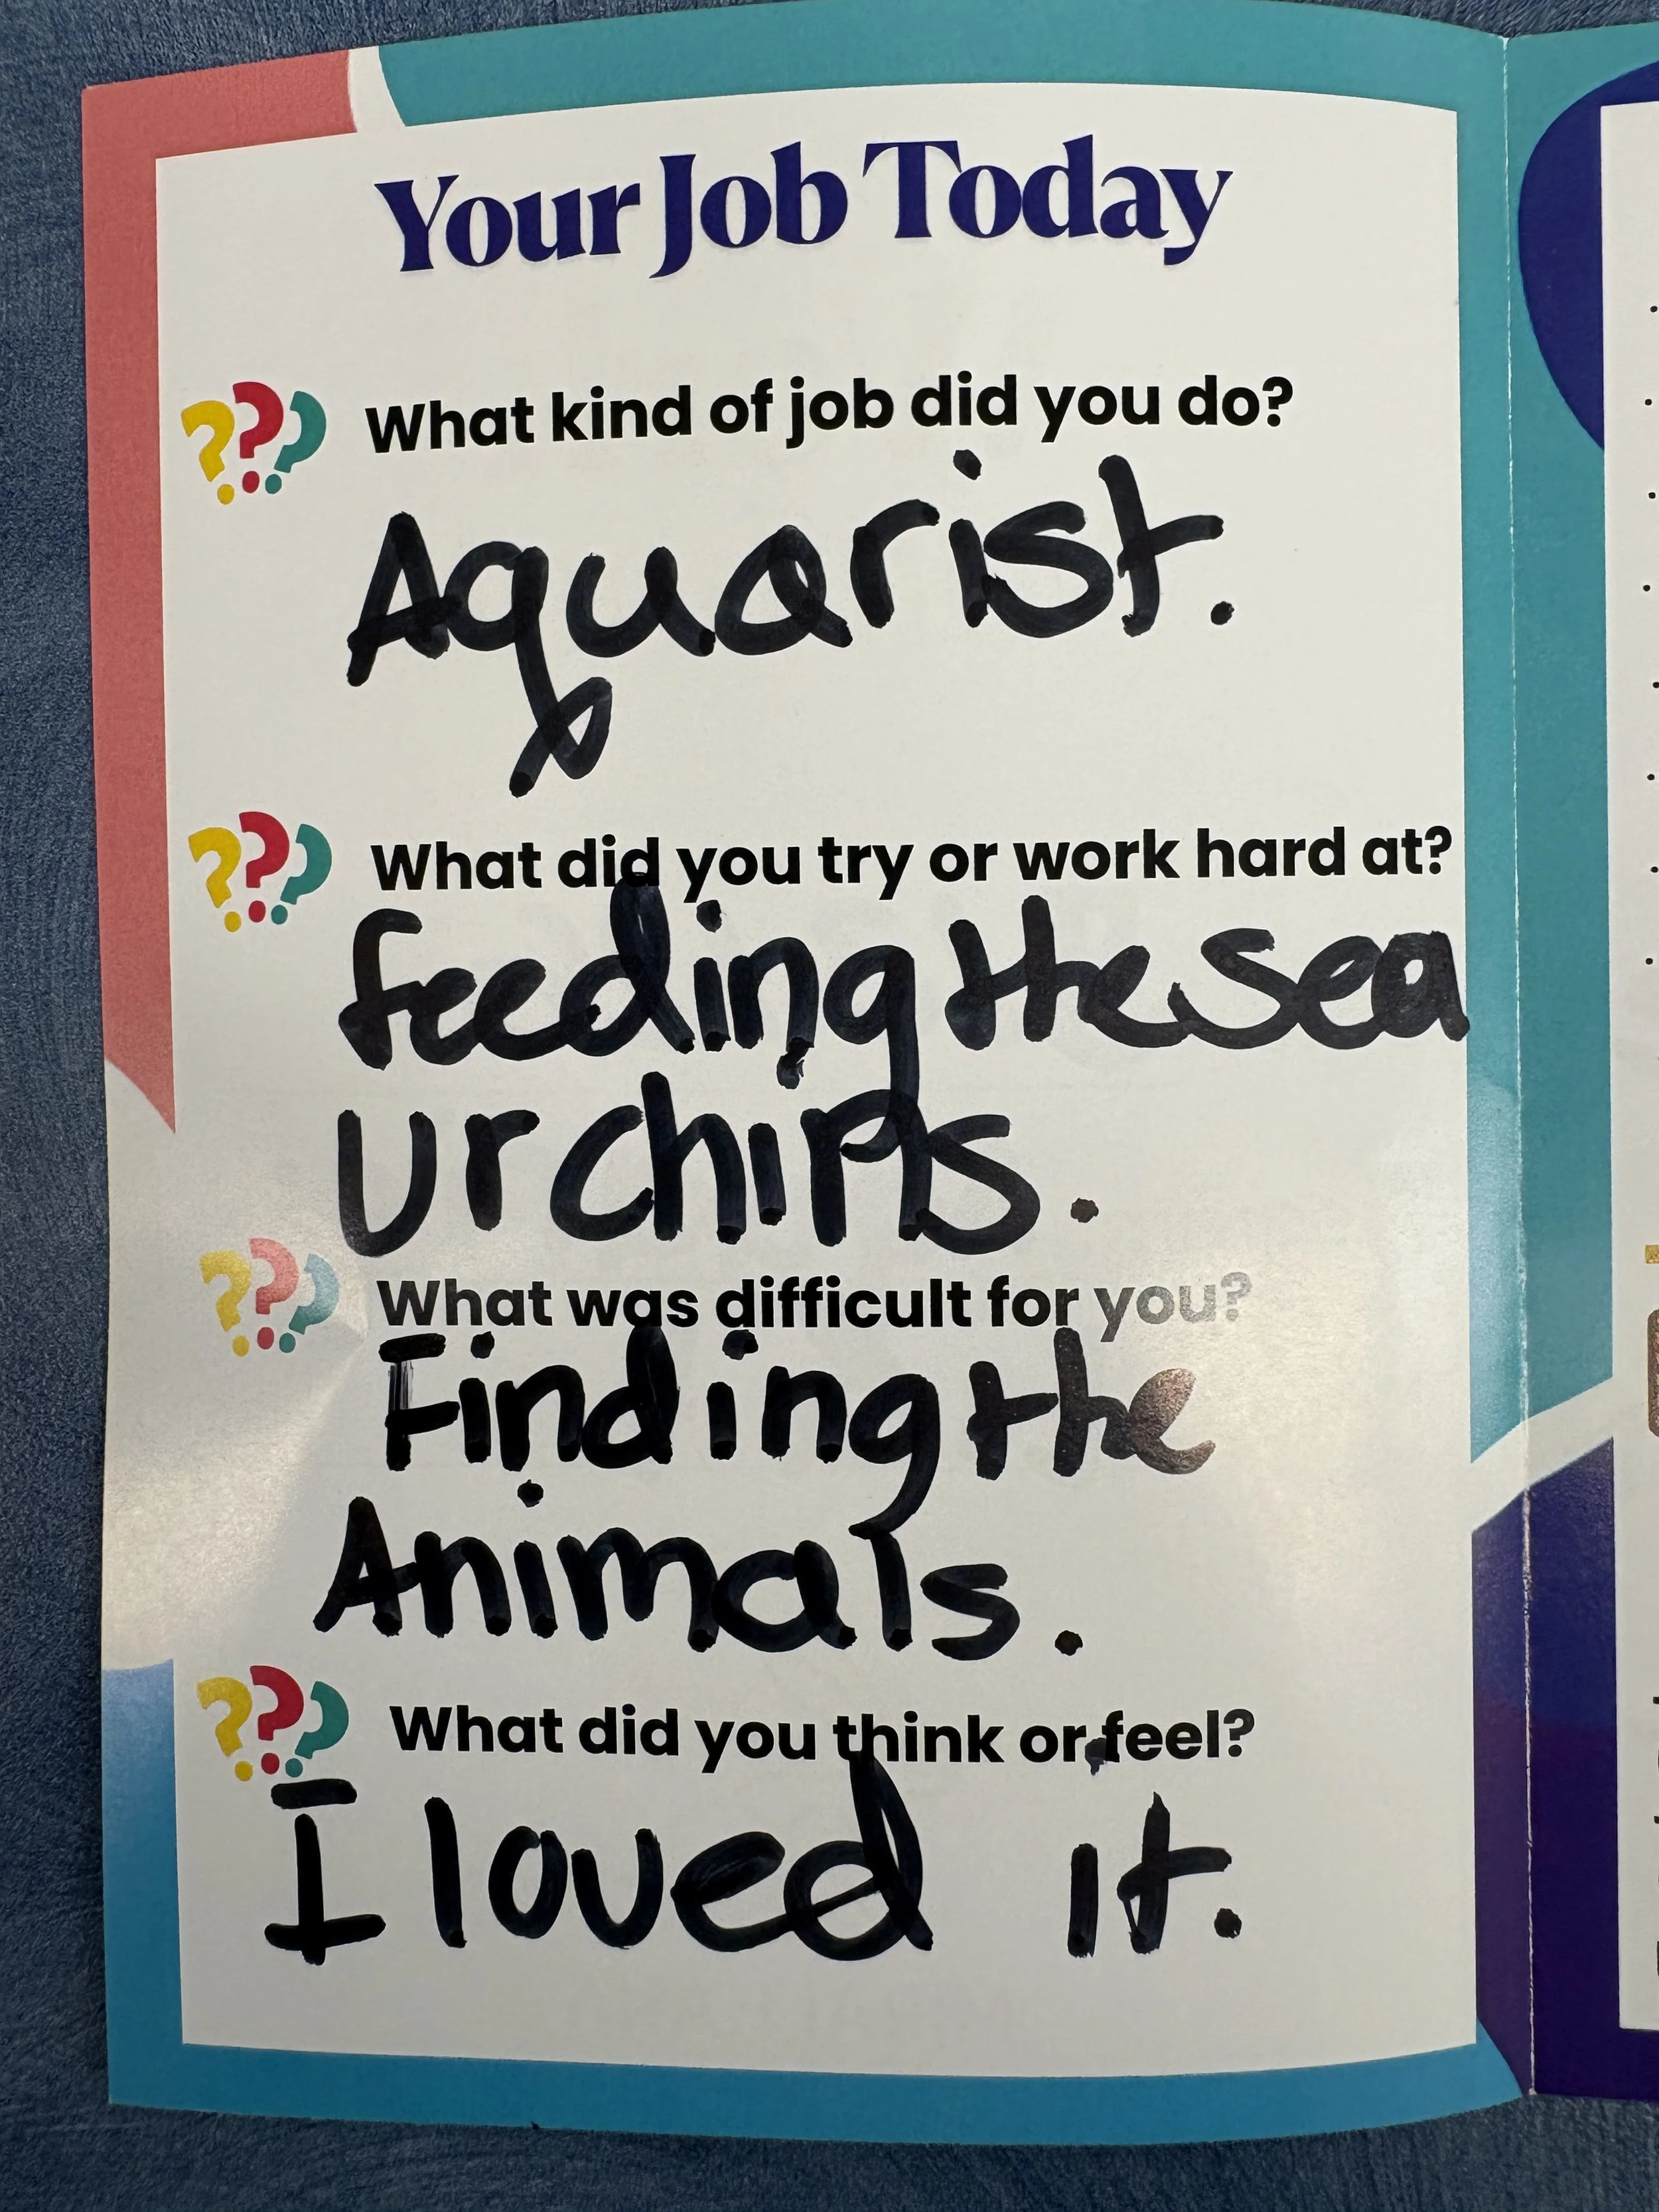 Your Job Today
What kind of job did you do?
Aquarist.
What did you try or work hard at?
feeding the sea
Urchins.
What was difficult for you?
Finding the
Animals.
What did you think or feel?
I loved it.